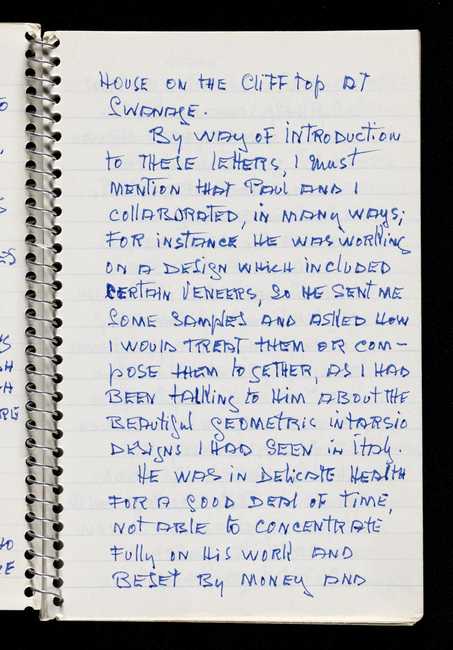 HOUSE ON THE CLIFF TOP AT
SWANAGE.
BY WAY OF INTRODUCTION
to THESE LETTERS, I MUST
MENTION THAT PAUL AND I
COLLABORATED, IN MANY WAYS;
FOR INSTANCE HE WAS WORKING
ON A DESIGN WHICH INCLUDED
CERTAIN VENEERS, SO HE SENT ME
SOME SAMPLES AND ASKED HOW
I WOULD TREAT THEM OR COM-
POSE THEM TOGETHER, AS I HAD
BEEN TALKING TO HIM ABOUT THE
BEAUTIFUL GEOMETRIC INTARSIO
DESIGNS I HAD SEEN IN ITALY.
HE WAS IN DELICATE HEALTH
FOR A GOOD DEAL OF TIME,
NOT ABLE TO CONCENTRATE
FULLY ON HIS WORK AND
BESET BY MONEY AND